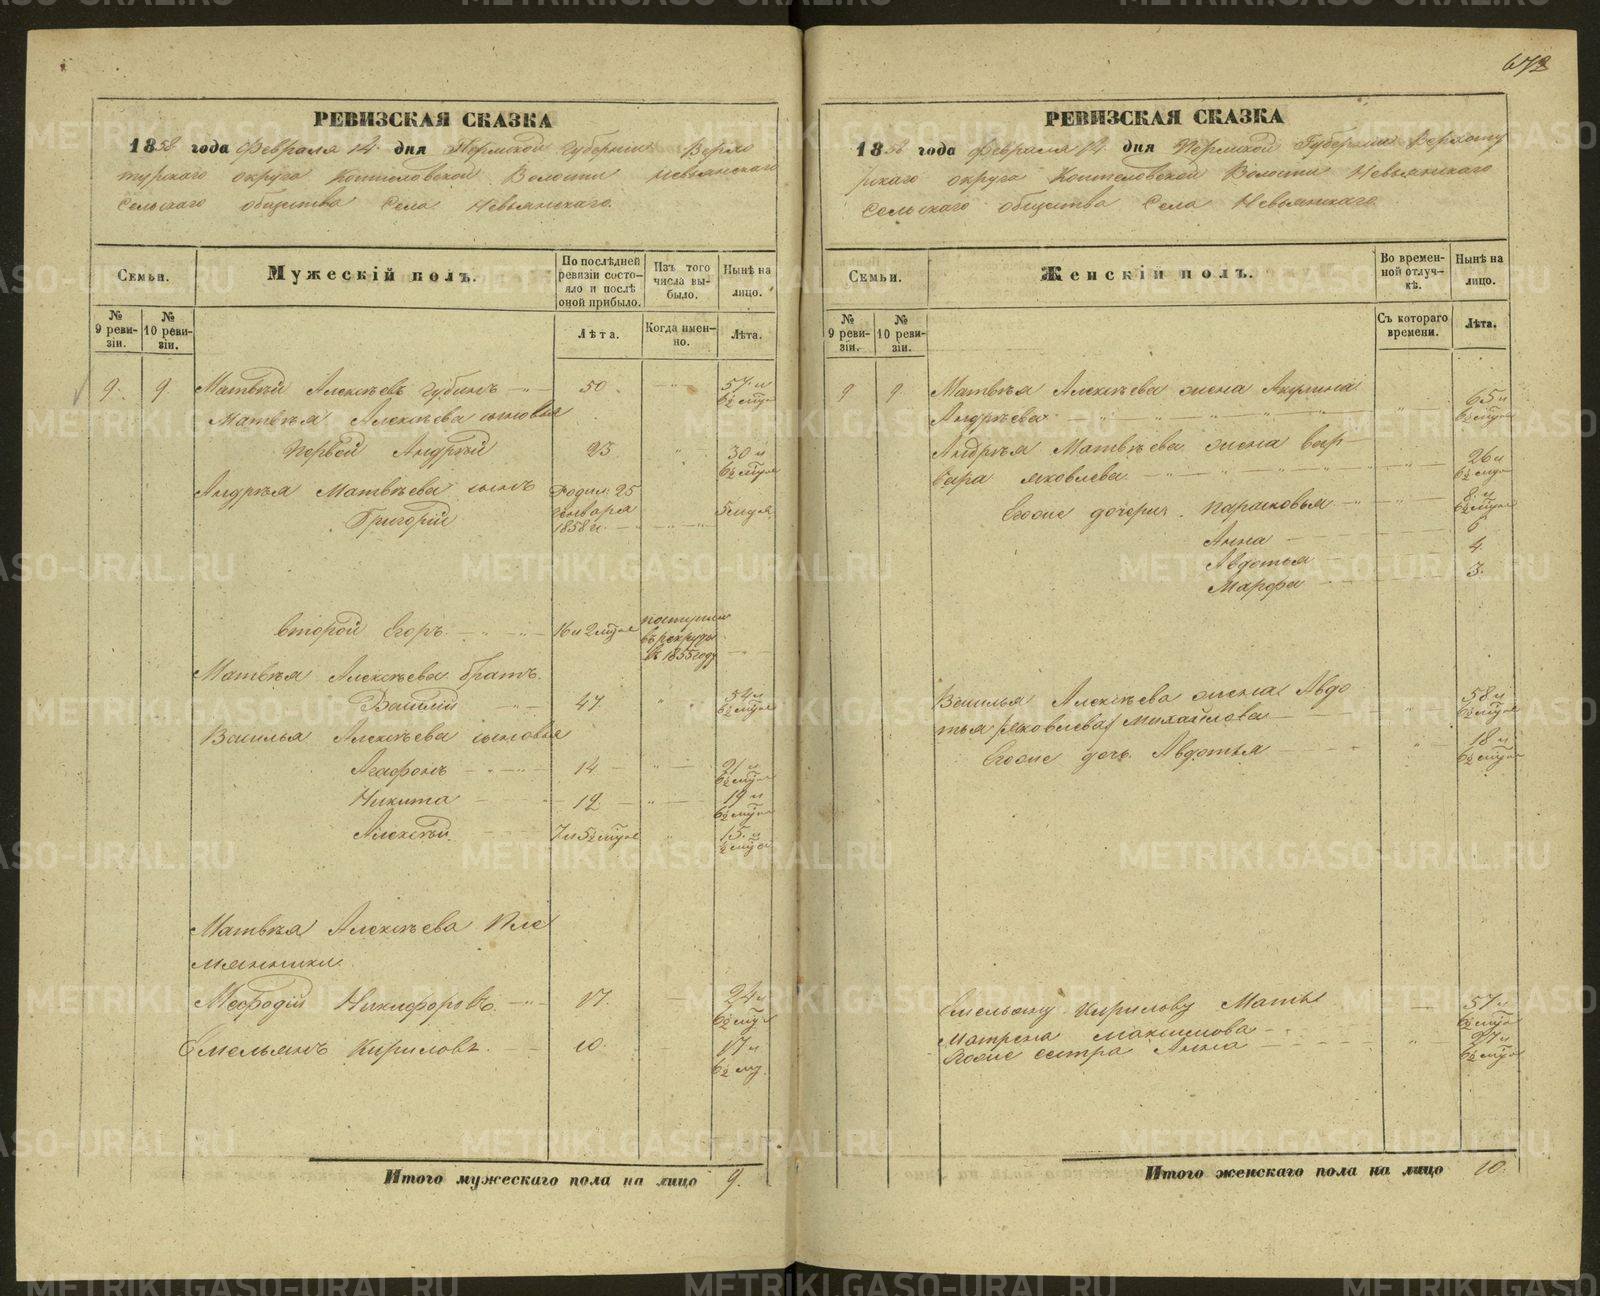 673
РЕВИЗСКАЯ СКАЗКА
1858 года Февраля 14 дня Пермской Губернии Верхо
турскаго округа Коптеловской Волости Невьянскаго
Сельскаго общества Села Невьянскаго.
Семьи.
Мужескій полъ.
По послѣдней ревизіи состояло и послѣ оной прибыло.
Изъ того числа выбыло.
Нынѣ на лицо.
№ 9 ревизіи.
№ 10 ревизіи.
Лѣта.
Когда именно.
Лѣта.
9. 9 Матвѣй Алексѣевъ Губинъ 50. 57 и 6½ мѣ
Матвѣя Алексѣева сыновья
первой Андрѣй 23 30 и 6½ мѣ
Андрѣя Матвѣева сынъ
Григорій
Родил. 25 генваря 1858 г.
Второй Егоръ 16 и 2 мѣ поступилъ въ рекруты въ 1855 году
Матвѣя Алексѣева братъ
Василій 47 54 и 6½ мѣ
Василья Алексѣева сыновья
Агафонъ 14 21 и 6½ мѣ
Никита 12 19 и 6½ мѣ
Алексѣй 7 и 5½ мѣ 15. и ½ мѣ
Матвѣя Алексѣева Пле
мянники
Мефодій Никифоровъ. 17. 24 и 6½ мѣ
Емельянъ Кириловъ. 10. 17 и 6½ мѣ
Итого мужескаго пола на лицо 9.
РЕВИЗСКАЯ СКАЗКА
1858 года Февраля 14 дня Пермской Губернии Верхоту
рскаго округа Коптеловской Волости Невьянскаго
Сельскаго общества Села Невьянскаго.
Семьи.
Женскій полъ.
Во временной отлучкѣ.
Нынѣ на лицо.
№ 9 ревизіи.
№ 10 ревизіи.
Съ котораго времени.
Лѣта.
9 9. Матвѣя Алексѣева жена Акулина
Андрѣева 65 и 6½ мѣ
Андрѣя Матвѣева жена Вар
вара Яковлева 26 и 6½ мѣ
Егоже дочери Парасковья 8. и 6½ мѣ
Анна 6
Авдотья 4.
Марфа 3.
Василья Алексѣева жена Авдо
тья (Яковлева) Михайлова 58 и 6½ мѣ
Егоже дочь Авдотья 18 и 6½ мѣ
Емельяну Кирилову Мать
Матрена Максимова 57 и 6½ мѣ
Егоже сестра Анна 27 и 6½ мѣ
Итого женскаго пола на лицо 10.
METRIKI.GASO-URAL.RU